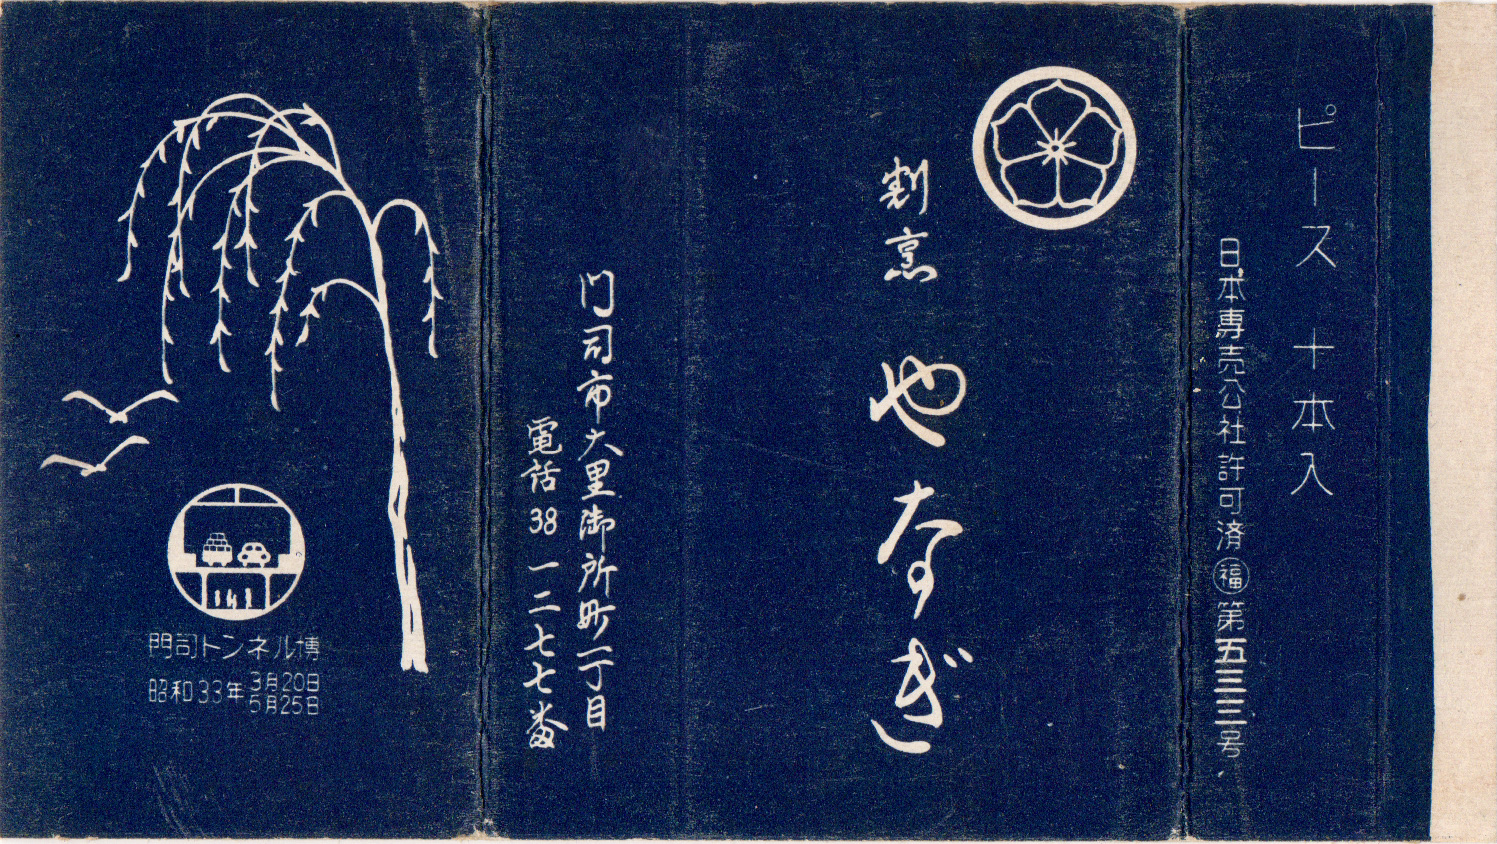 ピース十本入
日本專売公社許可済福第五三三号
割烹
やなぎ
門司市大里御所町一丁目
電話38一二七七番
門司トンネル博
昭和33年3月20日
5月25日